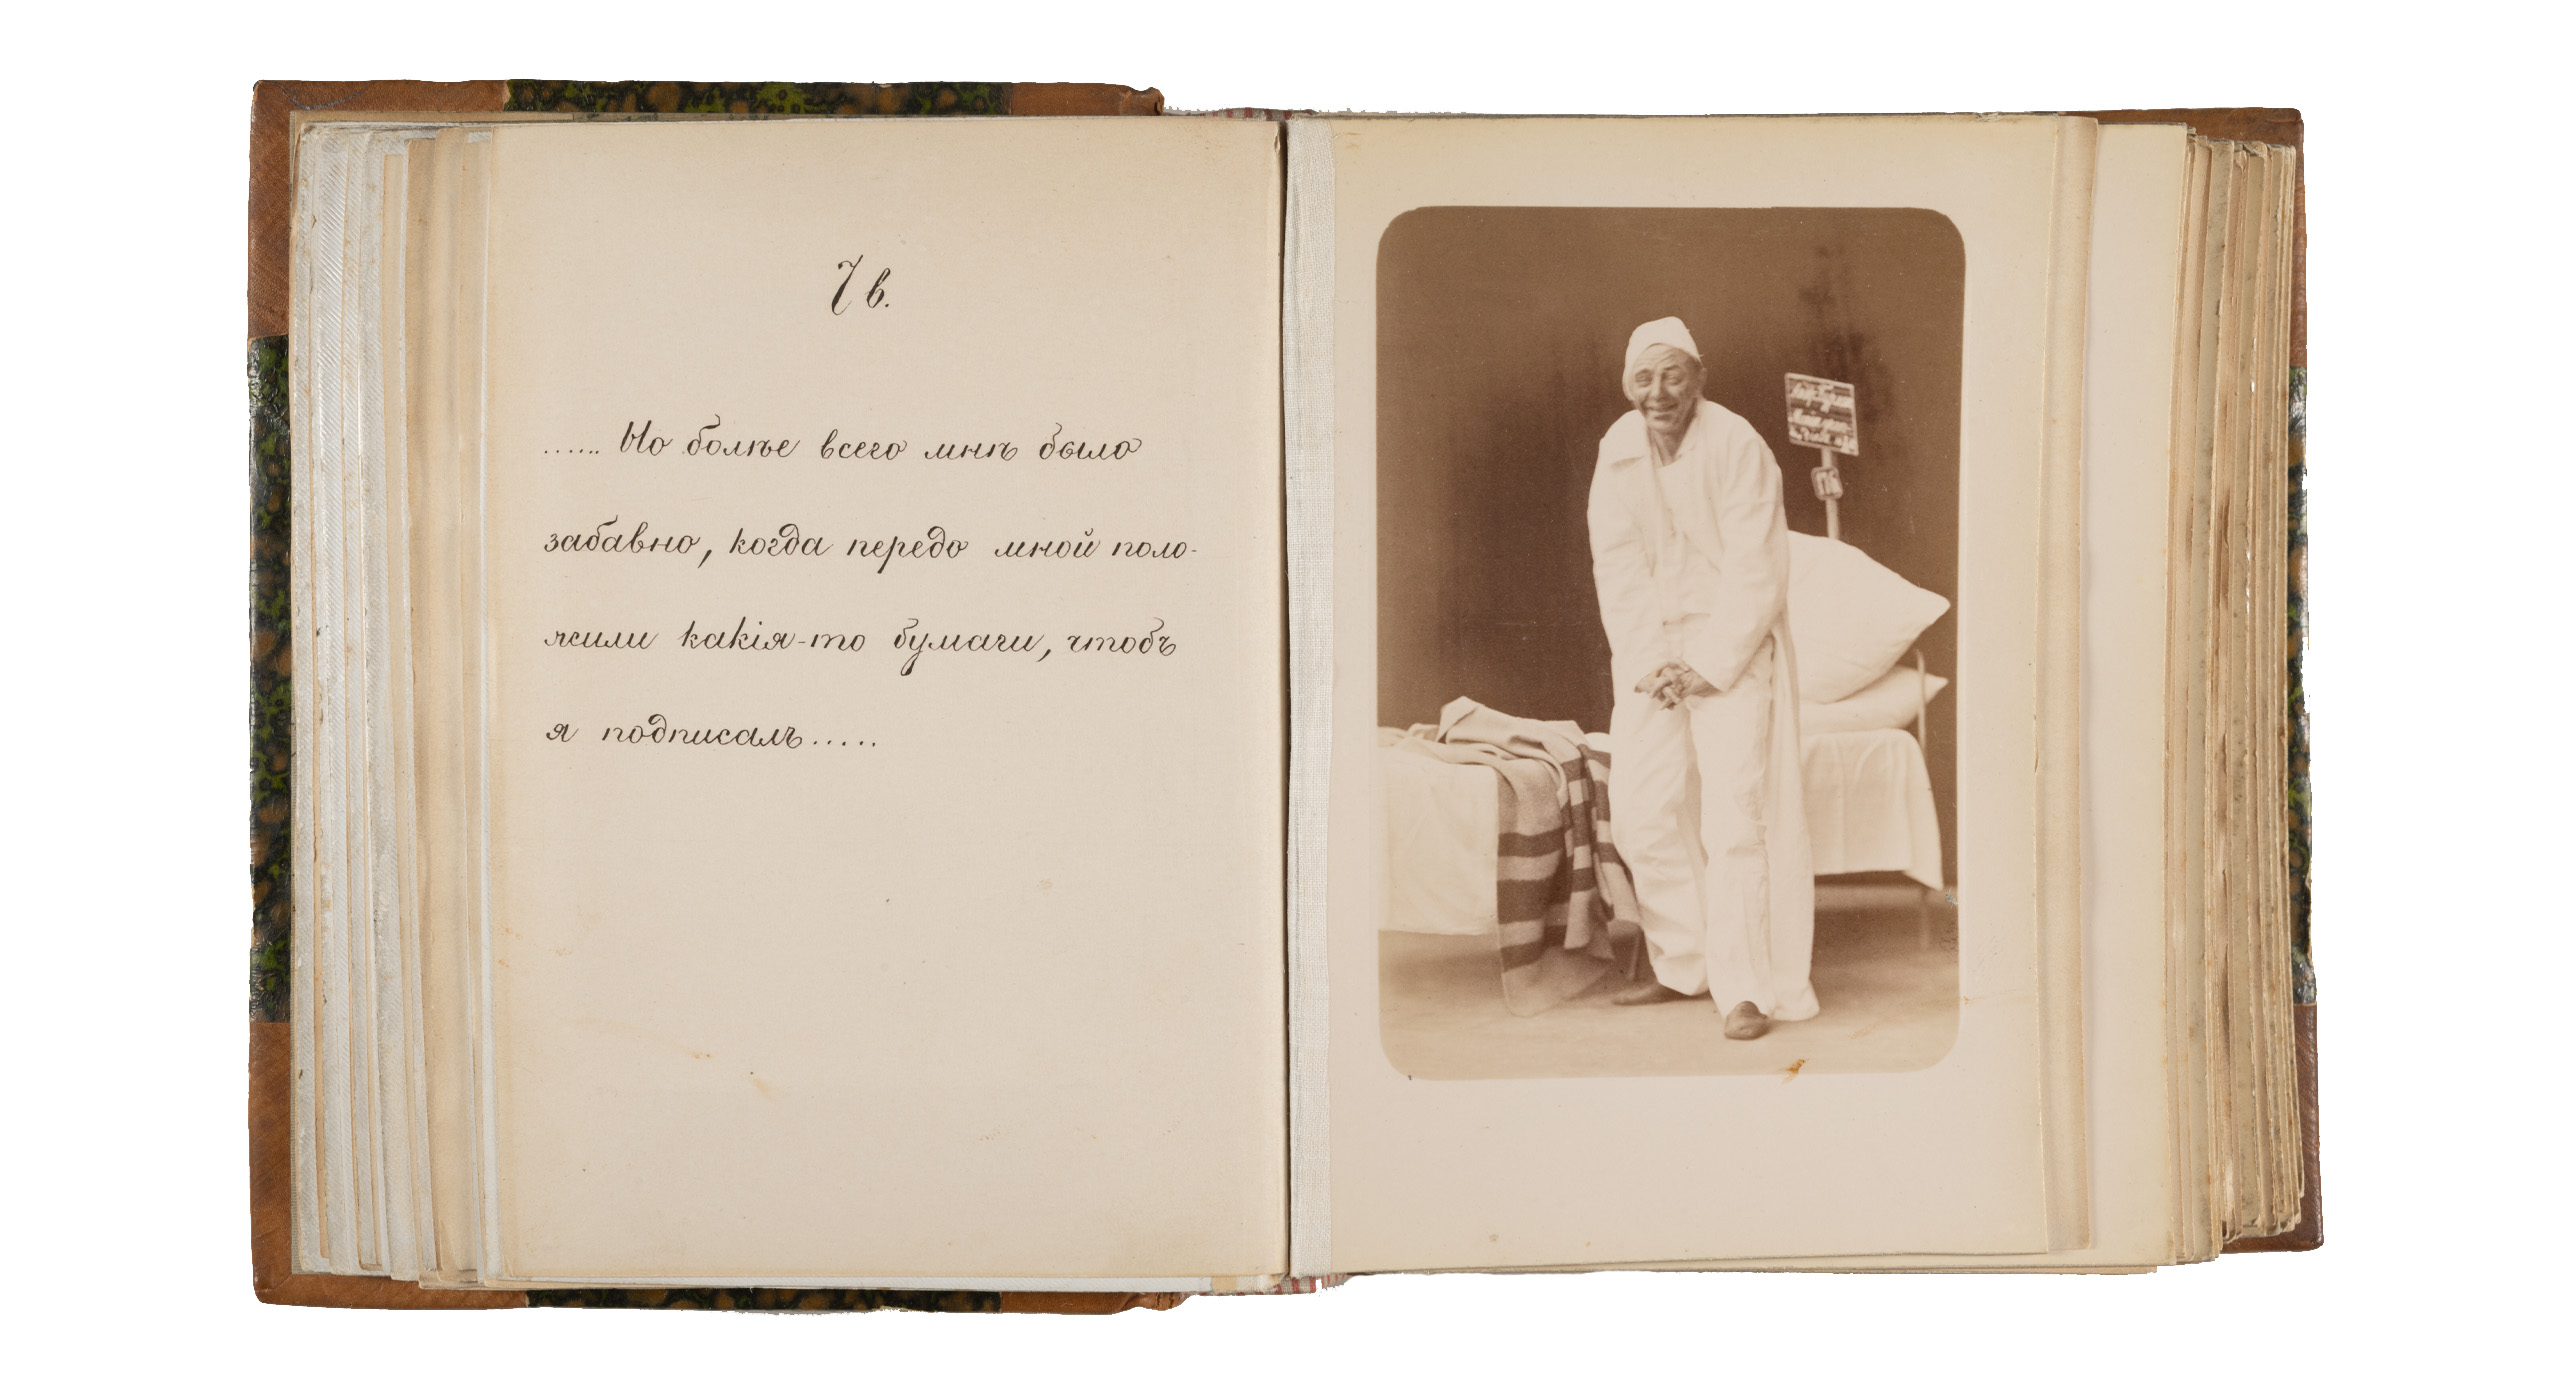 7 в.
...... Но болѣе всего мнѣ было
забавно, когда передо мной поло-
жили какія-то бумаги, чтобъ
я подписалъ.....